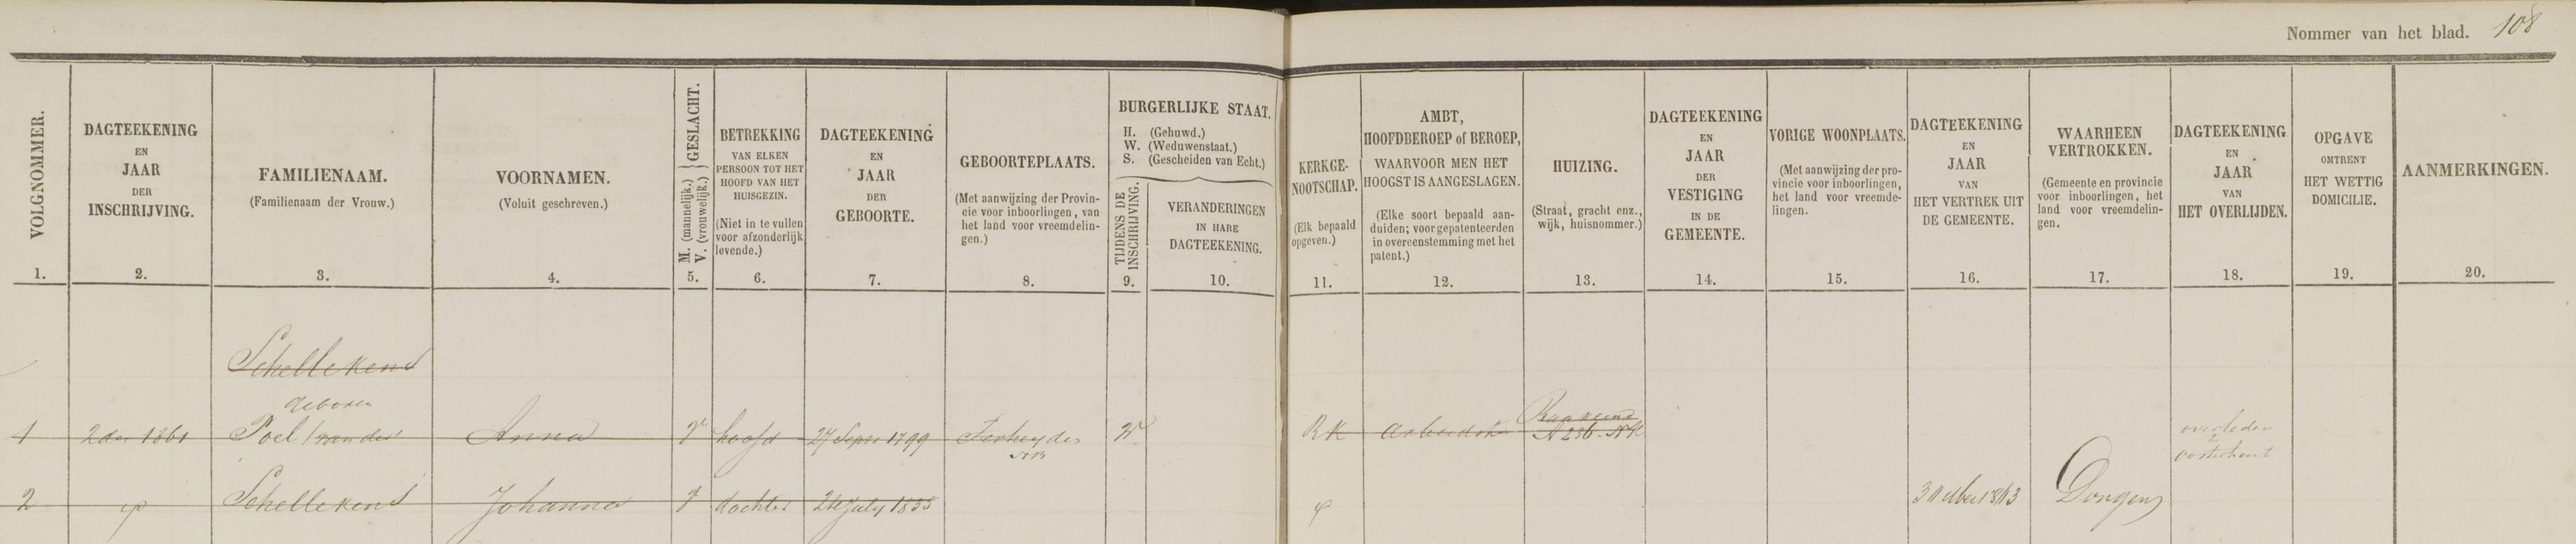 Nommer van het blad. 108
VOLGNOMMER.
1.
DAGTEEKENING
EN
JAAR
DER
INSCHRIJVING.
2.
FAMILIENAAM.
(Familienaam der Vrouw.)
3.
VOORNAMEN.
(Voluit geschreven.)
4.
GESLACHT.
M. (mannelijk.)
V. (vrouwelijk.)
5.
BETREKKING
VAN ELKEN
PERSOON TOT HET
HOOFD VAN HET
HUISGEZIN.
(Niet in te vullen
voor afzonderlijk
levende.)
6.
DAGTEEKENING
EN
JAAR
DER
GEBOORTE.
7.
GEBOORTEPLAATS.
(Met aanwijzing der Provin-
cie voor inboorlingen, van
het land voor vreemdelin-
gen.)
8.
BURGERLIJKE STAAT.
H. (Gehuwd.)
W. (Weduwenstaat.)
S. (Gescheiden van Echt.)
TIJDENS DE
INSCHRIJVING.
9.
VERANDERINGEN
IN HARE
DAGTEEKENING.
10.
KERKGE-
NOOTSCHAP.
(Elk bepaald
opgeven.)
11.
AMBT,
HOOFDBEROEP of BEROEP,
WAARVOOR MEN HET
HOOGST IS AANGESLAGEN.
(Elke soort bepaald aan-
duiden; voor gepatenteerden
in overeenstemming met het
patent.)
12.
HUIZING.
(Straat, gracht enz.,
wijk, huisnommer.)
13.
DAGTEEKENING
EN
JAAR
DER
VESTIGING
IN DE
GEMEENTE.
14.
VORIGE WOONPLAATS.
(Met aanwijzing der pro-
vincie voor inboorlingen,
het land voor vreemde-
lingen.
15.
DAGTEEKENING
EN
JAAR
VAN
HET VERTREK UIT
DE GEMEENTE.
16.
WAARHEEN
VERTROKKEN.
(Gemeente en provincie
voor inboorlingen, het
land voor vreemdelin-
gen.
17.
DAGTEEKENING
EN
JAAR
VAN
HET OVERLIJDEN.
18.
OPGAVE
OMTRENT
HET WETTIG
DOMICILIE.
19.
AANMERKINGEN.
20.
Schellekens
geboren
1 2 dec 1861 Poel / van der Anna V hoofd 27 Sept 1799 Terheyden W RK Arbeidster
NB
overleden
Oosterhout
2 Schellekens Johanna V dochter 24 July 1835 Dongen